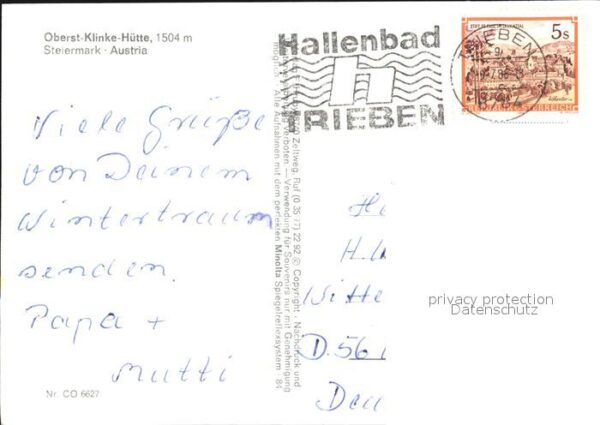 Oberst-Klinke-Hütte, 1504 m
Steiermark · Austria
Hallenbad
TRIEBEN
TRIEBEN
5s
Viele Grüße
von Deinem
Wintertraum
senden.
Papa +
Mutti
Nr. CO 6627
Zeltweg, Ruf (0 35 77) 22 92 © Copyright · Nachdruck und
verboten. — Verwendung für Souvenirs nur mit Genehmigung
möglich. Alle Aufnahmen mit dem perfekten Minolta Spiegelreflexsystem · 84
Witte
D. 56
privacy protection
Datenschutz